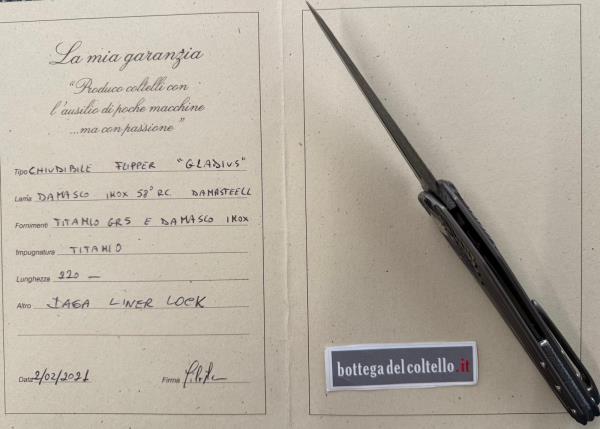 La mia garanzia
"Produco coltelli con
l'ausilio di poche macchine
...ma con passione"
Tipo CHIUDIBILE FLIPPER "GLADIUS"
Lama DAMASCO INOX 58° RC. DAMASTEEL
Fornimenti TITANIO GR5 E DAMASCO INOX
Impugnatura TITANIO
Lunghezza 220 —
Altro DAGA LINER LOCK
Data 2/02/2021 Firma
bottegadelcoltello.it